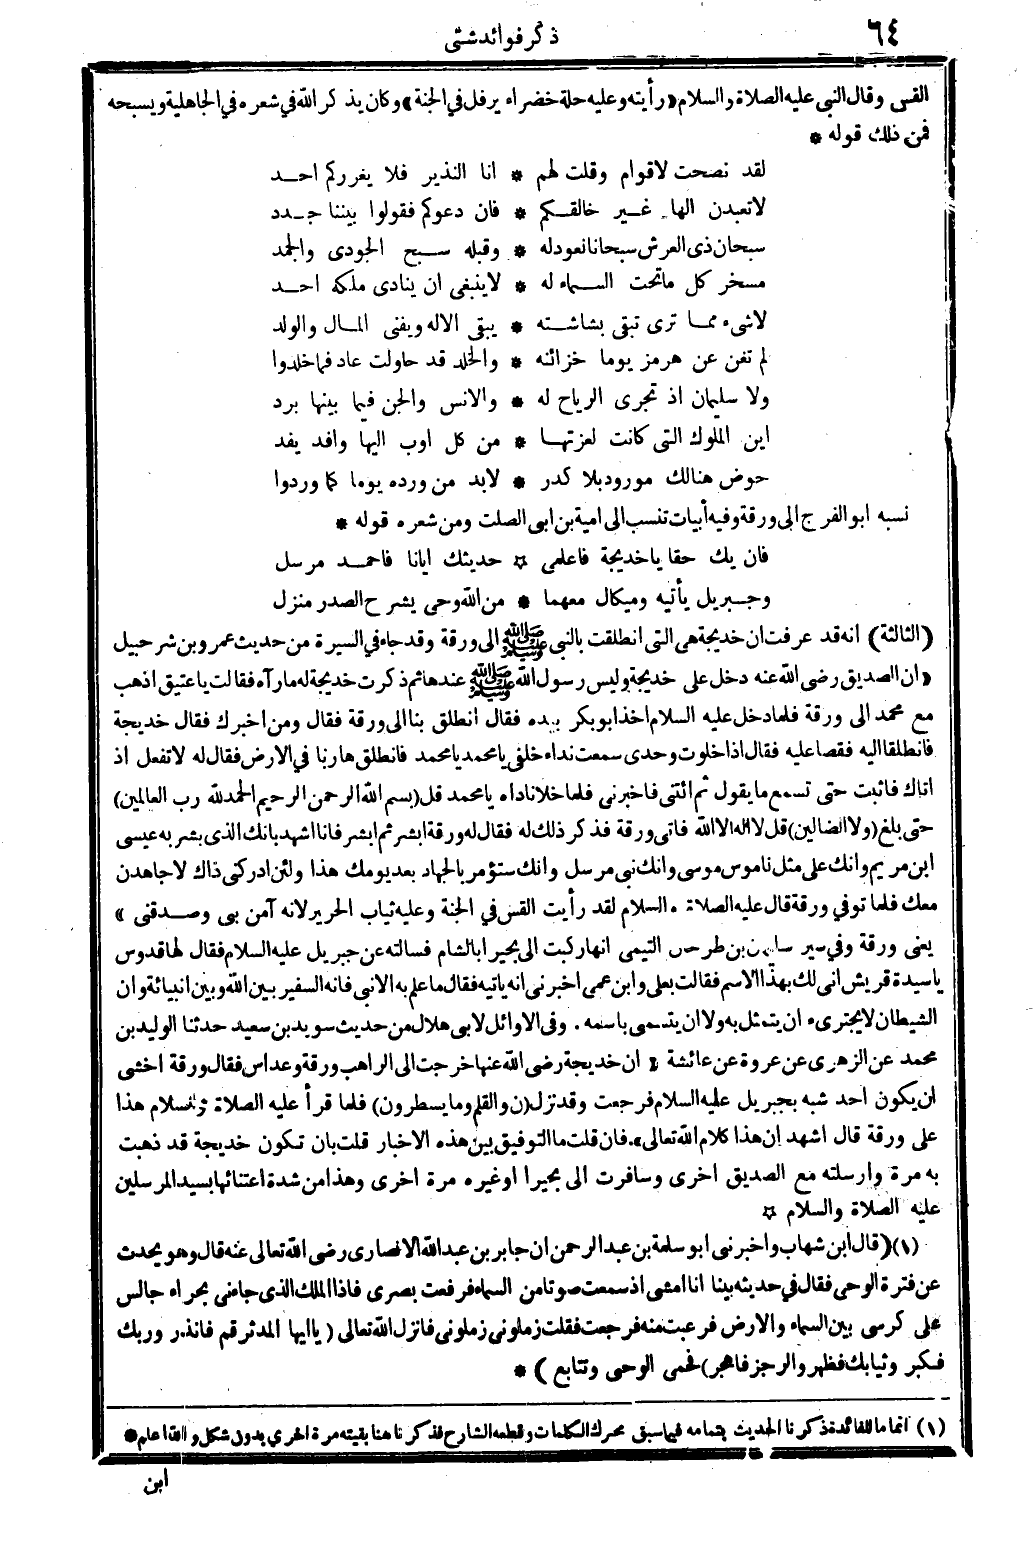 ٦٤
ذكر فوائد شتى
القس وقال النبي عليه الصلاة والسلام «رأيته وعليه حلة خضراء يرفل في الجنة» وكان يذكر الله في شعره في الجاهلية ويسبحه
فمن ذلك قوله *
لقد نصحت لاقوام وقلت لهم * انا النذير فلا يغرركم احد
لاتعبدن الها غير خالقكم * فان دعوكم فقولوا بيننا جدد
سبحان ذى العرش سبحانا نعود له * وقبله سبح الجودى والجمد
مسخر كل ماتحت السماء له * لاينبغى ان ينادى ملكه احد
لاشىء مما ترى تبقى بشاشته * يبقى الاله ويفنى المال والولد
لم تغن عن هرمز يوما خزائنه * والخلد قد حاولت عاد فما خلدوا
ولا سليمان اذ تجرى الرياح له * والانس والجن فيما بينها برد
اين الملوك التى كانت لعزتها * من كل اوب اليها وافد يفد
حوض هنالك مورود بلا كدر * لابد من ورده يوما كما وردوا
نسبه ابو الفرج الى ورقة وفيه أبيات تنسب الى امية بن ابى الصلت ومن شعره قوله *
فان يك حقا ياخديجة فاعلمى ☆ حديثك ايانا فاحمد مرسل
وجبريل يأتيه وميكال معهما * من الله وحى يشرح الصدر منزل
(الثالثة) انه قد عرفت ان خديجة هى التى انطلقت بالنبى ﷺ الى ورقة وقد جاء في السيرة من حديث عمرو بن شرحبيل
«ان الصديق رضى الله عنه دخل على خديجة وليس رسول الله ﷺ عندها ثم ذكرت خديجة له مارآه فقالت ياعتيق اذهب
مع محمد الى ورقة فلما دخل عليه السلام اخذ ابو بكر بيده فقال انطلق بنا الى ورقة فقال ومن اخبرك فقال خديجة
فانطلقا اليه فقصا عليه فقال اذا خلوت وحدى سمعت نداء خلفى يامحمد يامحمد فانطلق هاربا في الارض فقال له لاتفعل اذ
اتاك فاثبت حتى تسمع مايقول ثم ائتنى فاخبرنى فلما خلا ناداه يامحمد قل (بسم الله الرحمن الرحيم الحمدلله رب العالمين)
حتى بلغ (ولا الضالين) قل لا اله الا الله فاتى ورقة فذكر ذلك له فقال له ورقة ابشر ثم ابشر فانا اشهد بانك الذى بشر به عيسى
ابن مريم وانك على مثل ناموس موسى وانك نبى مرسل وانك ستؤمر بالجهاد بعد يومك هذا ولئن ادركنى ذاك لاجاهدن
معك فلما توفي ورقة قال عليه الصلاة والسلام لقد رأيت القس في الجنة وعليه ثياب الحرير لانه آمن بى وصدقنى »
يعنى ورقة وفي سير بن طرخان التيمى انها ركبت الى بحيرا بالشام فسالته عن جبريل عليه السلام فقال لها قدوس
ياسيدة قريش انى لك بهذا الاسم فقالت بعلى وابن عمى اخبرنى انه ياتيه فقال ماعلم به الا نبى فانه السفير بين الله وبين انبيائه وان
الشيطان لايجترىء ان يتمثل به ولا ان يتسمى باسمه . وفى الاوائل لابى هلال من حديث سويد بن سعيد حدثنا الوليد بن
محمد عن الزهرى عن عروة عن عائشة «ان خديجة رضى الله عنها خرجت الى الراهب ورقة وعداس فقال ورقة اخشى
ان يكون احد شبه بجبريل عليه السلام فرجعت وقد نزل (ن والقلم وما يسطرون) فلما قرأ عليه الصلاة والسلام هذا
على ورقة قال اشهد ان هذا كلام الله تعالى». فان قلت ما التوفيق بين هذه الاخبار قلت بان تكون خديجة قد ذهبت
به مرة وارسلته مع الصديق اخرى وسافرت الى بحيرا اوغيره مرة اخرى وهذا من شدة اعتنائها بسيد المرسلين
عليه الصلاة والسلام ☆
(١) (قال ابن شهاب واخبرنى ابو سلمة بن عبد الرحمن ان جابر بن عبد الله الانصارى رضى الله تعالى عنه قال وهو يحدث
عن فترة الوحى فقال في حديثه بينا انا امشى اذ سمعت صوتا من السماء فرفعت بصرى فاذا الملك الذى جاءنى بحراء جالس
على كرسى بين السماء والارض فرعبت منه فرجعت فقلت زملونى زملونى فانزل الله تعالى (ياايها المدثر قم فانذر وربك
فكبر وثيابك فطهر والرجز فاهجر) فحمى الوحى وتتابع ) *
(١) اتماما للفائدة ذكرنا الحديث بتمامه فيما سبق محرك الكلمات وقطعه الشارح فذكرنا هنا بقيته مرة اخرى بدون شكل والله اعلم *
ابن